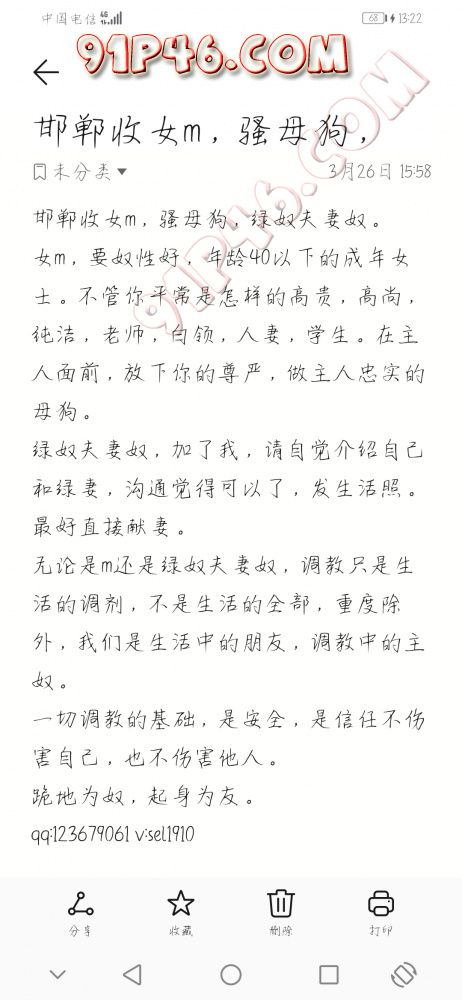 中国电信 4G 68 13:22
91P46.COM
邯郸收女m，骚母狗，
未分类 3月26日 15:58
91P46.COM
邯郸收女m，骚母狗，绿奴夫妻奴。
女m，要奴性好，年龄40以下的成年女
士。不管你平常是怎样的高贵，高尚，
纯洁，老师，白领，人妻，学生。在主
人面前，放下你的尊严，做主人忠实的
母狗。
绿奴夫妻奴，加了我，请自觉介绍自己
和绿妻，沟通觉得可以了，发生活照。
最好直接献妻。
无论是m还是绿奴夫妻奴，调教只是生
活的调剂，不是生活的全部，重度除
外，我们是生活中的朋友，调教中的主
奴。
一切调教的基础，是安全，是信任不伤
害自己，也不伤害他人。
跪地为奴，起身为友。
qq:123679061 v:sel1910
分享 收藏 删除 打印